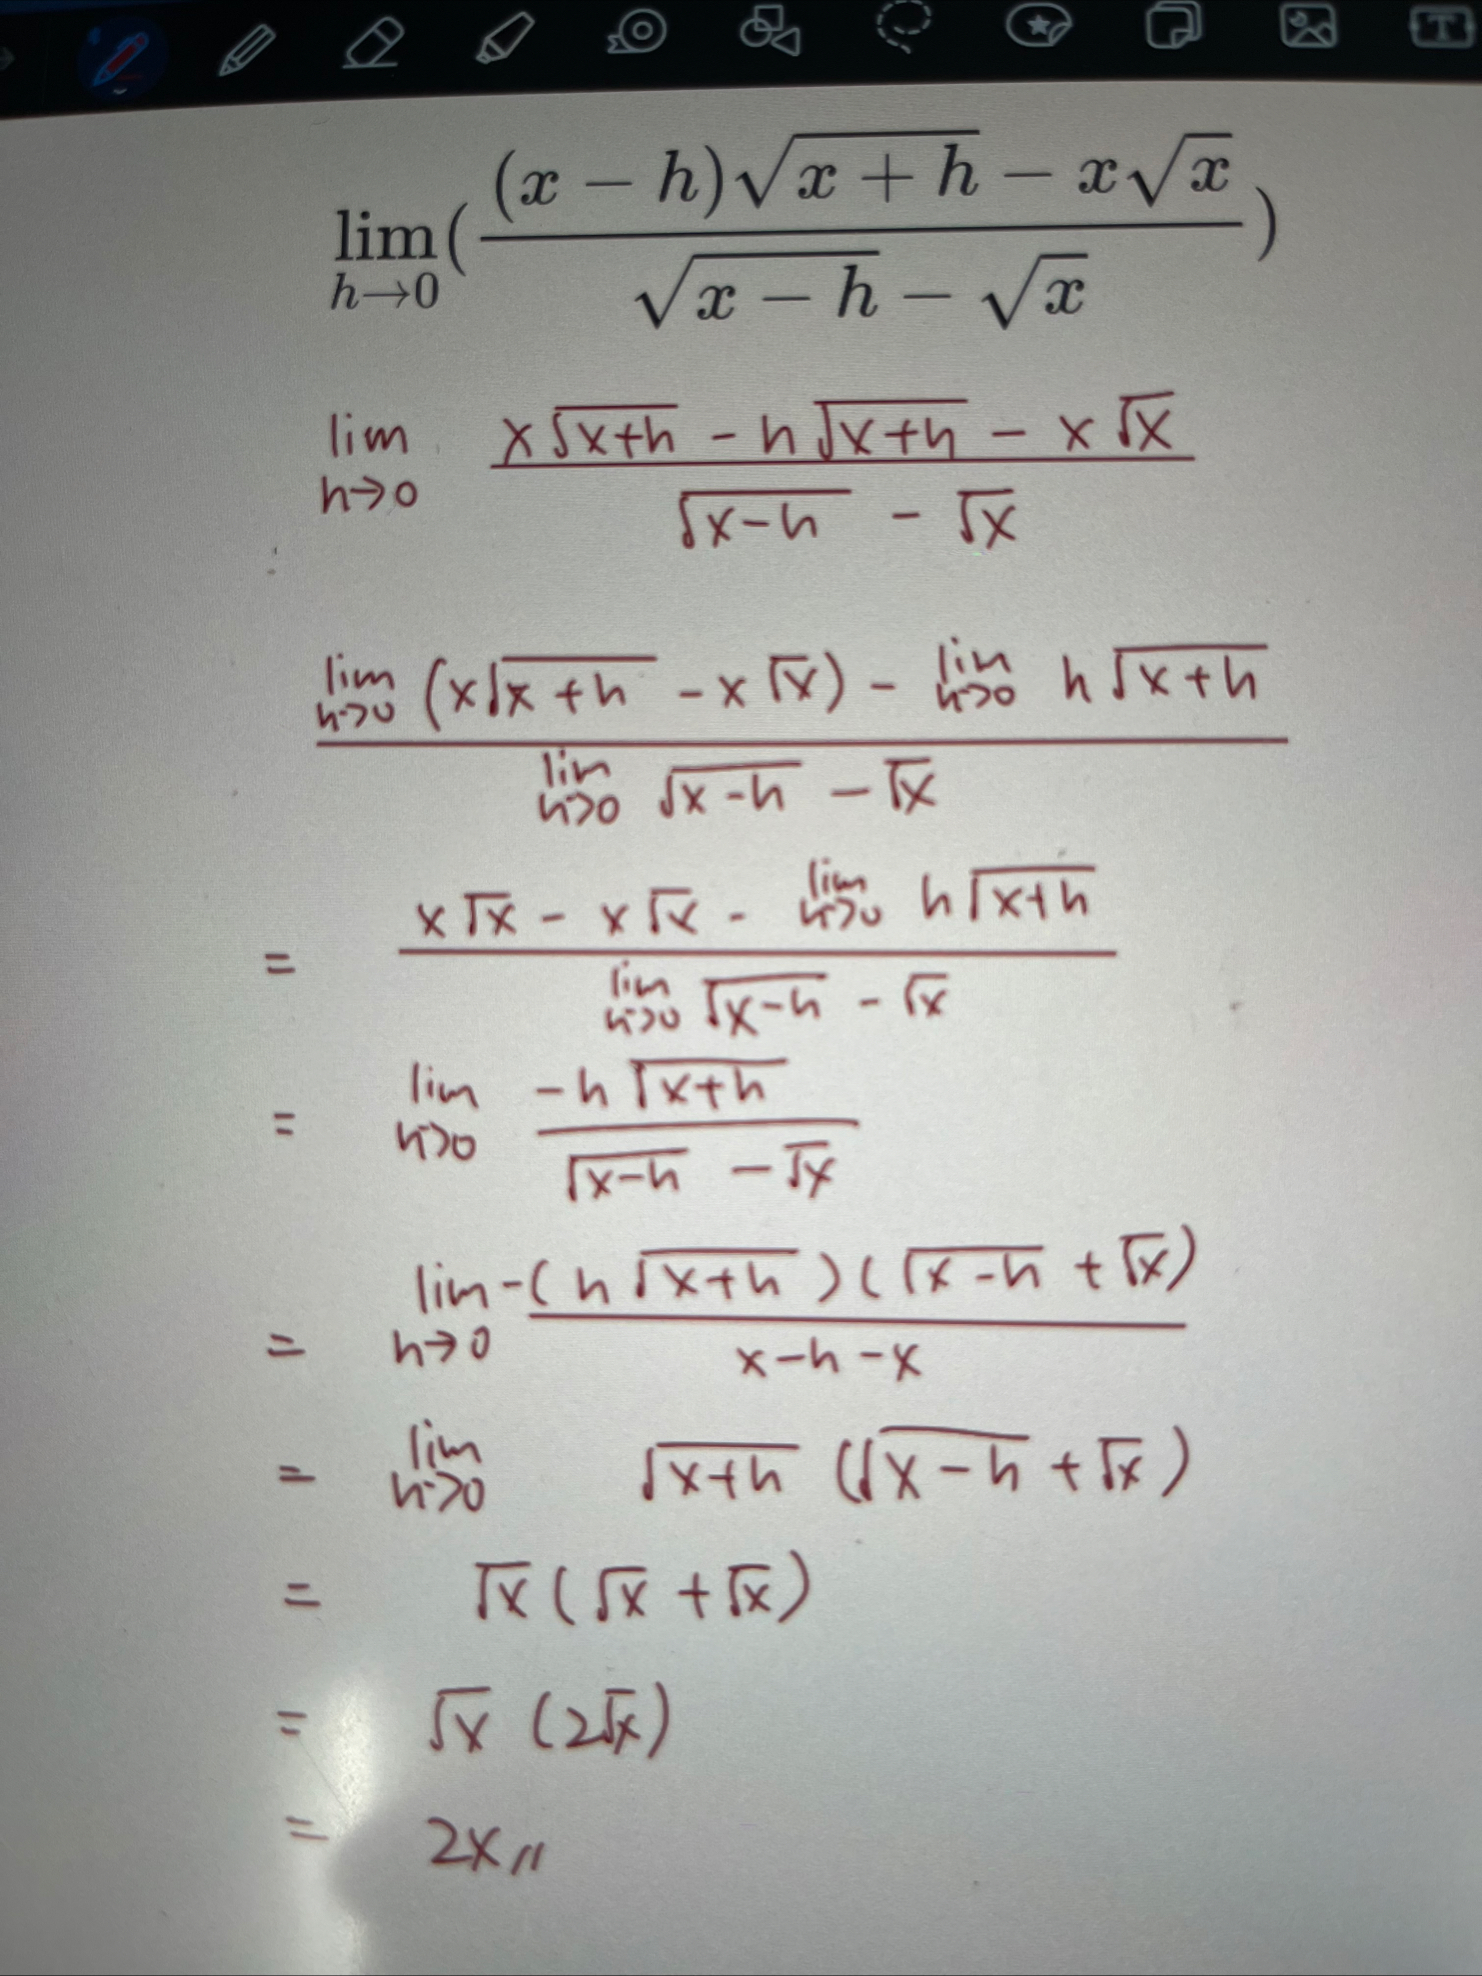 lim_{h→0}( ((x − h)√(x + h) − x√x) / (√(x − h) − √x) )
lim_{h→0} (x√(x+h) - h√(x+h) - x√x) / (√(x-h) - √x)
(lim_{h→0} (x√(x+h) - x√x) - lim_{h→0} h√(x+h)) / (lim_{h→0} √(x-h) - √x)
= (x√x - x√x - lim_{h→0} h√(x+h)) / (lim_{h→0} √(x-h) - √x)
= lim_{h→0} (-h√(x+h)) / (√(x-h) - √x)
= lim_{h→0} -((h√(x+h))(√(x-h) + √x)) / (x-h-x)
= lim_{h→0} √(x+h) (√(x-h) + √x)
= √x(√x + √x)
= √x (2√x)
= 2x//